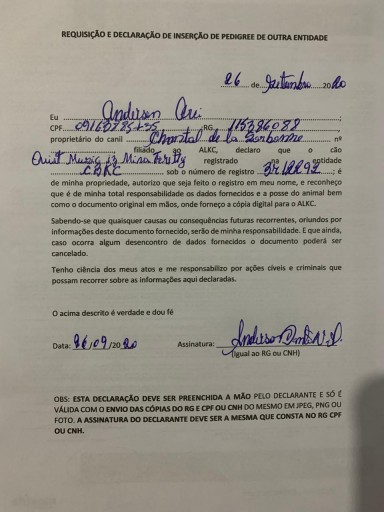 REQUISIÇÃO E DECLARAÇÃO DE INSERÇÃO DE PEDIGREE DE OUTRA ENTIDADE
26 de Setembro 2020
Eu Anderson
CPF RG
proprietário do canil Chantal de la Sorbonne nº
filiado ao ALKC, declaro que o cão
registrado na entidade
CBKC sob o número de registro é
de minha propriedade, autorizo que seja feito o registro em meu nome, e reconheço
que é de minha total responsabilidade os dados fornecidos e a posse do animal bem
como o documento original em mãos, onde forneço a cópia digital para o ALKC.
Sabendo-se que quaisquer causas ou consequências futuras recorrentes, oriundos por
informações deste documento fornecido, serão de minha responsabilidade. E que ainda,
caso ocorra algum desencontro de dados fornecidos o documento poderá ser
cancelado.
Tenho ciência dos meus atos e me responsabilizo por ações cíveis e criminais que
possam recorrer sobre as informações aqui declaradas.
O acima descrito é verdade e dou fé
Data: 26/09/2020 Assinatura: Anderson
(igual ao RG ou CNH)
OBS: ESTA DECLARAÇÃO DEVE SER PREENCHIDA A MÃO PELO DECLARANTE E SÓ É
VÁLIDA COM O ENVIO DAS CÓPIAS DO RG E CPF OU CNH DO MESMO EM JPEG, PNG OU
FOTO. A ASSINATURA DO DECLARANTE DEVE SER A MESMA QUE CONSTA NO RG CPF
OU CNH.